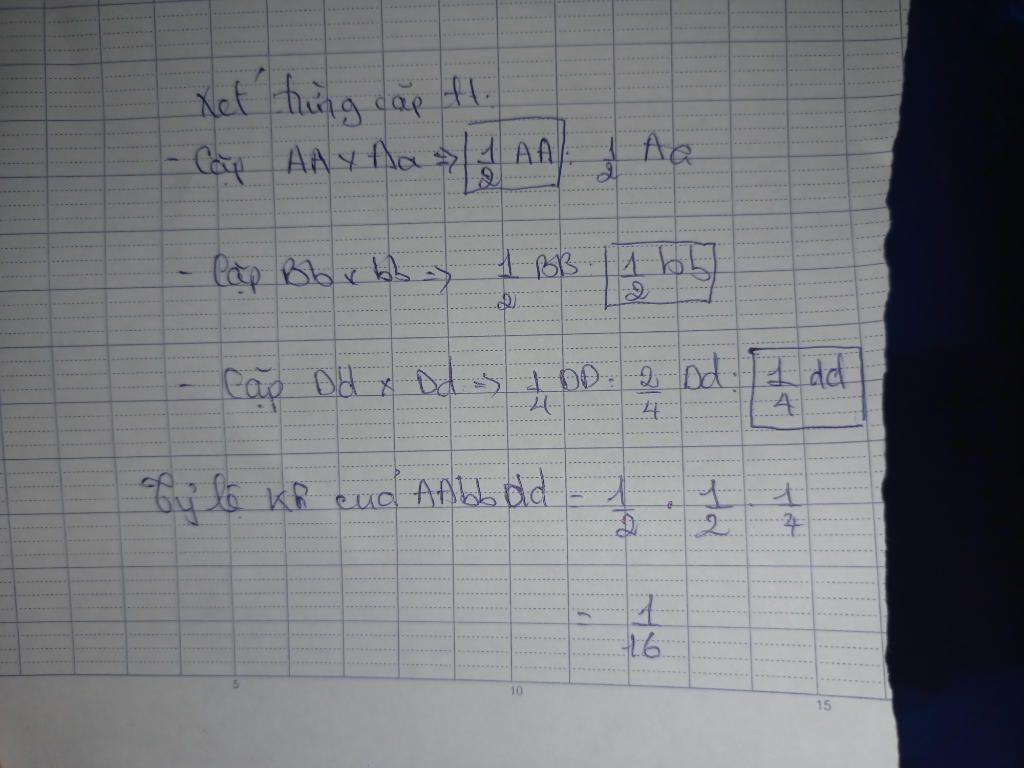 Xét từng cặp tt.
- Cặp AA x Aa => 1/2 AA : 1/2 Aa
- Cặp Bb x bb => 1/2 BB : 1/2 bb
- Cặp Dd x Dd => 1/4 DD : 2/4 Dd : 1/4 dd
Tỷ lệ KG của AAbbDd = 1/2 . 1/2 . 1/4
= 1/16
5 10 15